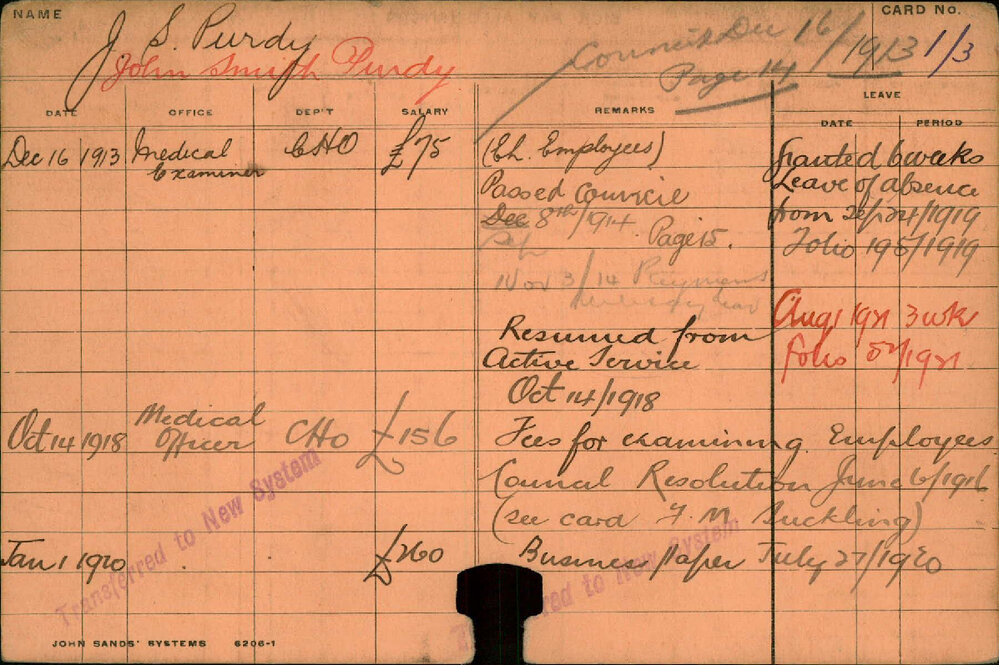 NAME
CARD No.
J. S. Purdy
John Smith Purdy
Council Dec 16/1913
Page 14
1/3
DATE OFFICE DEP'T SALARY REMARKS LEAVE
DATE PERIOD
Dec 16 1913 Medical Examiner CHO £75
(Ex. Employees)
Passed Council
Dec 8th/1914 Page 15.
Nov 3/14
Resumed from
Active Service
Oct 14/1918
Granted 6 weeks
Leave of absence
from
Folio 195/1919
Aug 1 1921 3 wk
folio 1921
Oct 14 1918 Medical Officer CHO £156
Fees for examining Employees
Council Resolution June 6/1916
(see card F. M. Suckling)
Jan 1 1920 £260
Business Paper July 27/1920
Transferred to New System
Transferred to New System
JOHN SANDS' SYSTEMS 6206-1